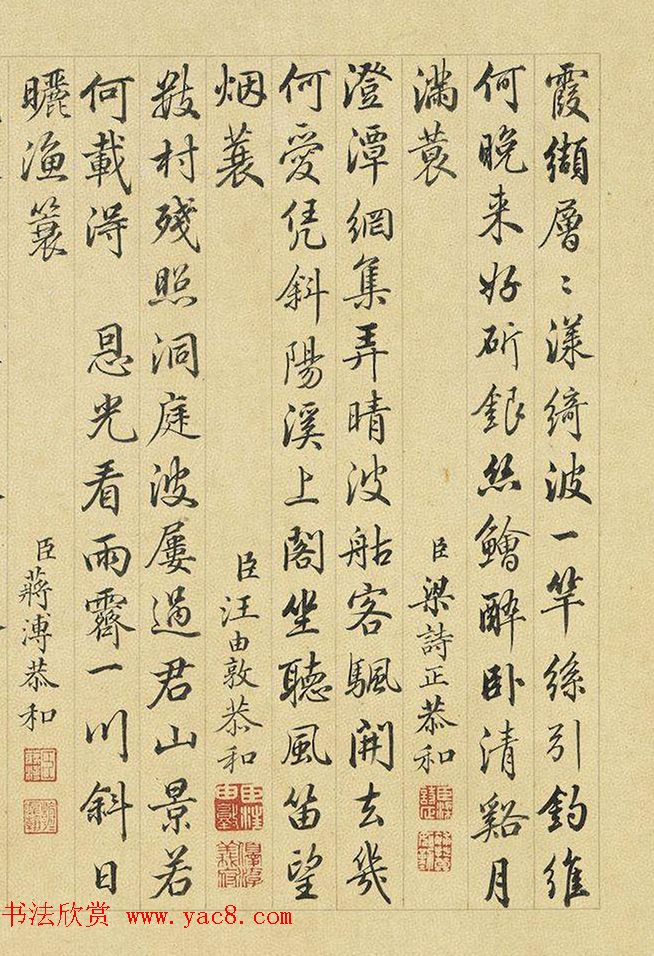 霞纈層〻漾綺波一竿絲引釣維
何晚来好斫銀絲鱠醉卧清谿月
滿蓑
臣梁詩正恭和
澄潭網集弄晴波客颿開去幾
何愛凭斜陽溪上閣坐聽風笛望
烟蓑
臣汪由敦恭和
數村殘照洞庭波屢過君山景若
何載得 恩光看雨霽一川斜日
曬漁簑
臣蔣溥恭和
书法欣赏 www.yac8.com